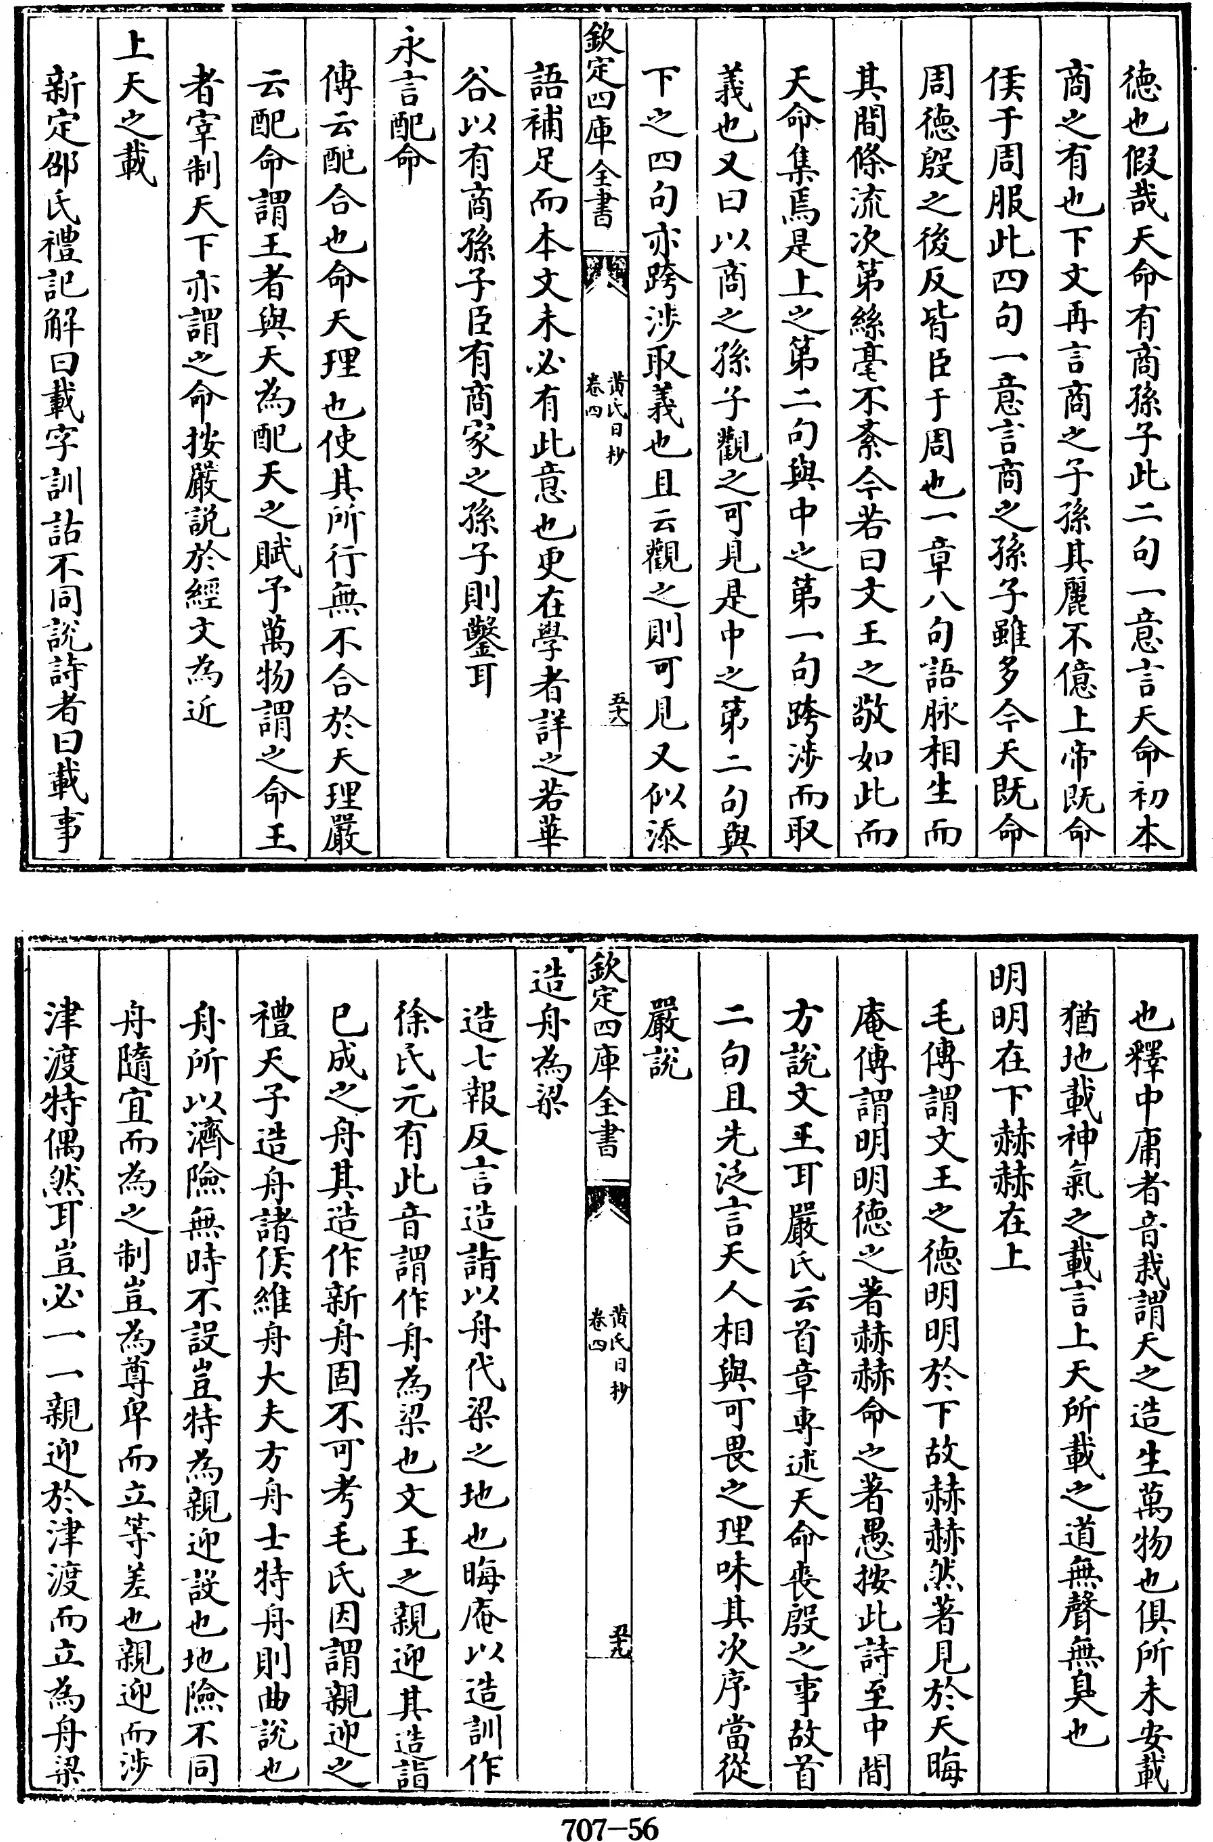 德也假哉天命有商孫子此二句一意言天命初本
商之有也下文再言商之子孫其麗不億上帝既命
侯于周服此四句一意言商之孫子雖多今天既命
周德殷之後反皆臣于周也一章八句語脉相生而
其間條流次第絲毫不紊今若曰文王之敬如此而
天命集焉是上之第二句與中之第一句跨涉而取
義也又曰以商之孫子觀之可見是中之第二句與
下之四句亦跨涉取義也且云觀之則可見又似添
欽定四庫全書
黄氏日抄
卷四
五十八
語補足而本文未必有此意也更在學者詳之若華
谷以有商孫子臣有商家之孫子則鑿耳
永言配命
傳云配合也命天理也使其所行無不合於天理嚴
云配命謂王者與天為配天之賦予萬物謂之命王
者宰制天下亦謂之命按嚴説於經文為近
上天之載
新定邵氏禮記解曰載字訓詁不同説詩者曰載事
也釋中庸者音栽謂天之造生萬物也俱所未安載
猶地載神氣之載言上天所載之道無聲無臭也
明明在下赫赫在上
毛傳謂文王之德明明於下故赫赫然著見於天晦
庵傳謂明明德之著赫赫命之著愚按此詩至中間
方説文王耳嚴氏云首章専述天命喪殷之事故首
二句且先泛言天人相與可畏之理味其次序當從
嚴説
欽定四庫全書
黄氏日抄
卷四
五十九
造舟為梁
造七報反言造詣以舟代梁之地也晦庵以造訓作
徐氏元有此音謂作舟為梁也文王之親迎其造詣
已成之舟其造作新舟固不可考毛氏因謂親迎之
禮天子造舟諸侯維舟大夫方舟士特舟則曲説也
舟所以濟險無時不設豈特為親迎設也地險不同
舟隨宜而為之制豈為尊卑而立等差也親迎而涉
津渡特偶然耳豈必一一親迎於津渡而立為舟梁
707-56